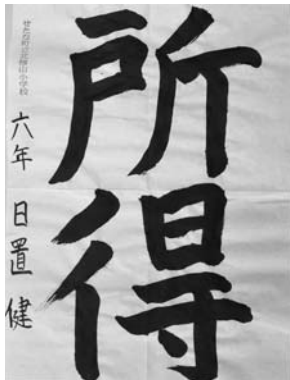 所得
せたな町立北檜山小学校
六年 日置 健